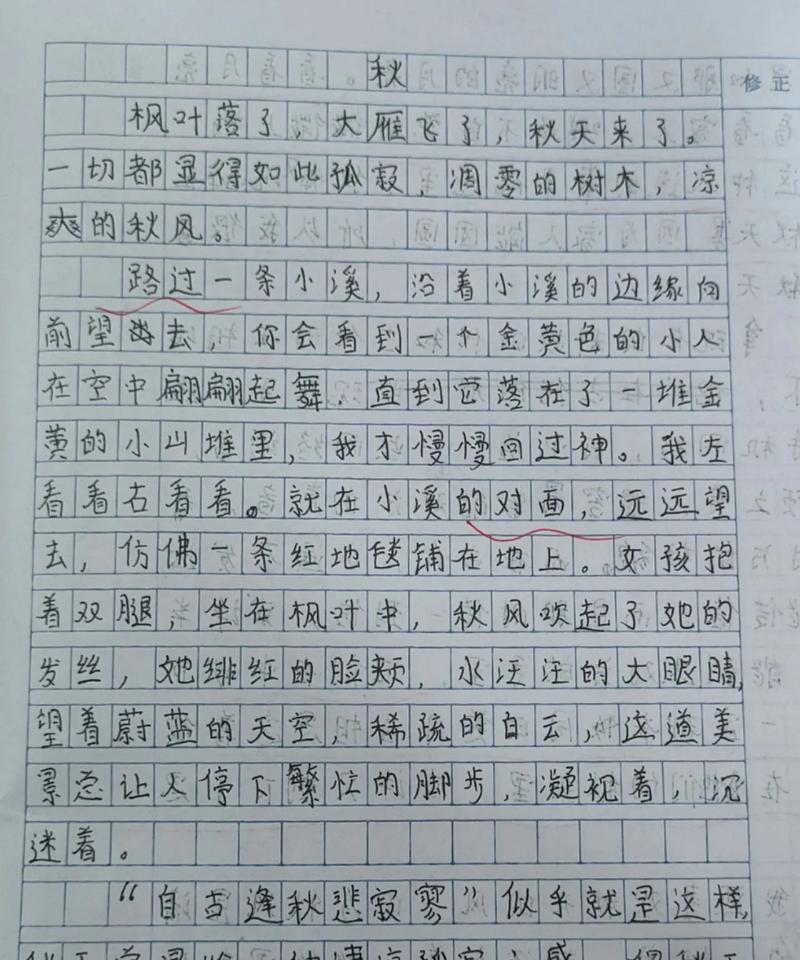 秋
修正
枫叶落了，大雁飞了，秋天来了。
一切都显得如此孤寂，凋零的树木，凉
爽的秋风。
路过一条小溪，沿着小溪的边缘向
前望去，你会看到一个金黄色的小人
在空中翩翩起舞，直到它落在了一堆金
黄的小山堆里，我才慢慢回过神。我左
看看右看看。就在小溪的对面，远远望
去，仿佛一条红地毯铺在地上。女孩抱
着双腿，坐在枫叶中，秋风吹起了她的
发丝，她绯红的脸颊，水汪汪的大眼睛，
望着蔚蓝的天空，稀疏的白云，这道美
景总让人停下繁忙的脚步，凝视着，沉
迷着。
“自古逢秋悲寂寥”似乎就是这样，